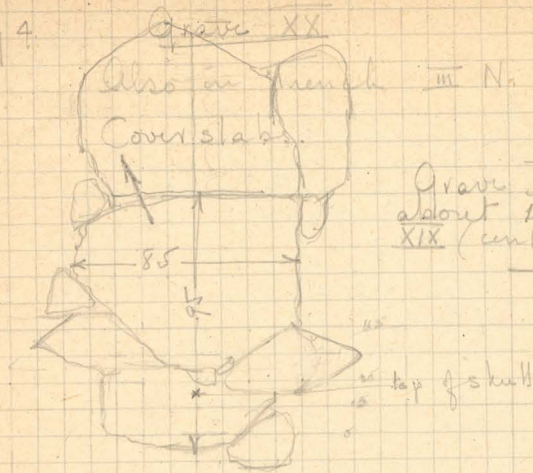 4
Grave XX
Also in Trench III N.
Cover slabs.
Grave
about
XIX
85
top of skull